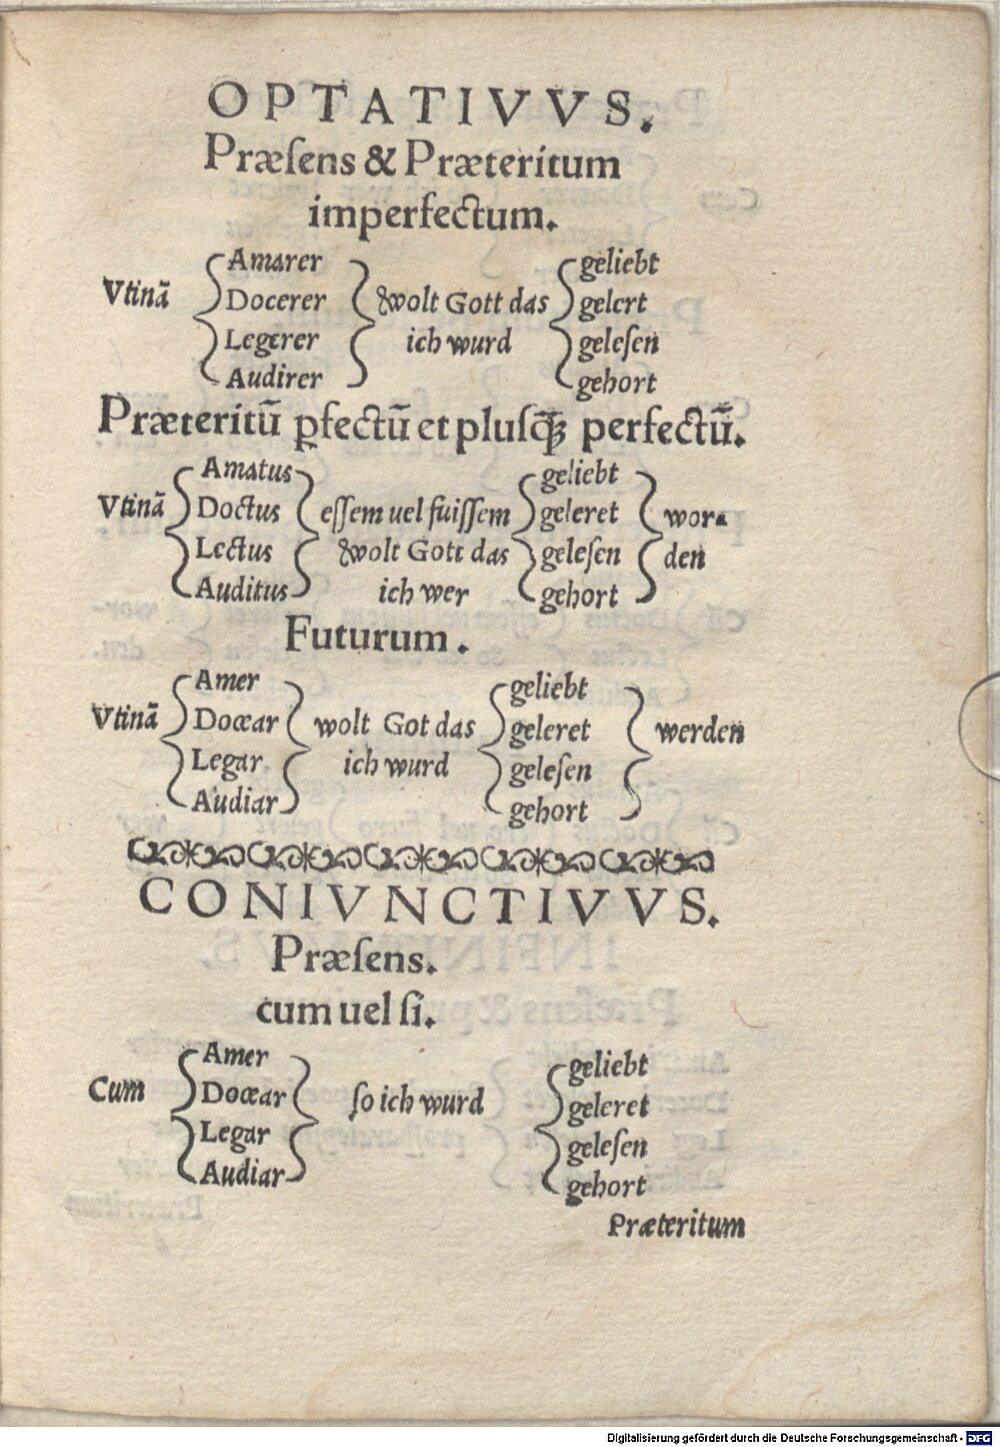 OPTATIVVS.
Præſens & Præteritum
imperfectum.
Amarer geliebt
Vtinā Docerer wolt Gott das gelert
Legerer ich wurd geleſen
Audirer gehort
Præteritū ꝑfectū et pluſq̄ꝫ perfectū.
Amatus geliebt
Vtinā Doctus eſſem uel fuiſſem geleret wor-
Lectus wolt Gott das geleſen den
Auditus ich wer gehort
Futurum.
Amer geliebt
Vtinā Docear wolt Got das geleret werden
Legar ich wurd geleſen
Audiar gehort
CONIVNCTIVVS.
Præſens.
cum uel ſi.
Amer geliebt
Cum Docear ſo ich wurd geleret
Legar geleſen
Audiar gehort
Præteritum
Digitalisierung gefördert durch die Deutsche Forschungsgemeinschaft - DFG